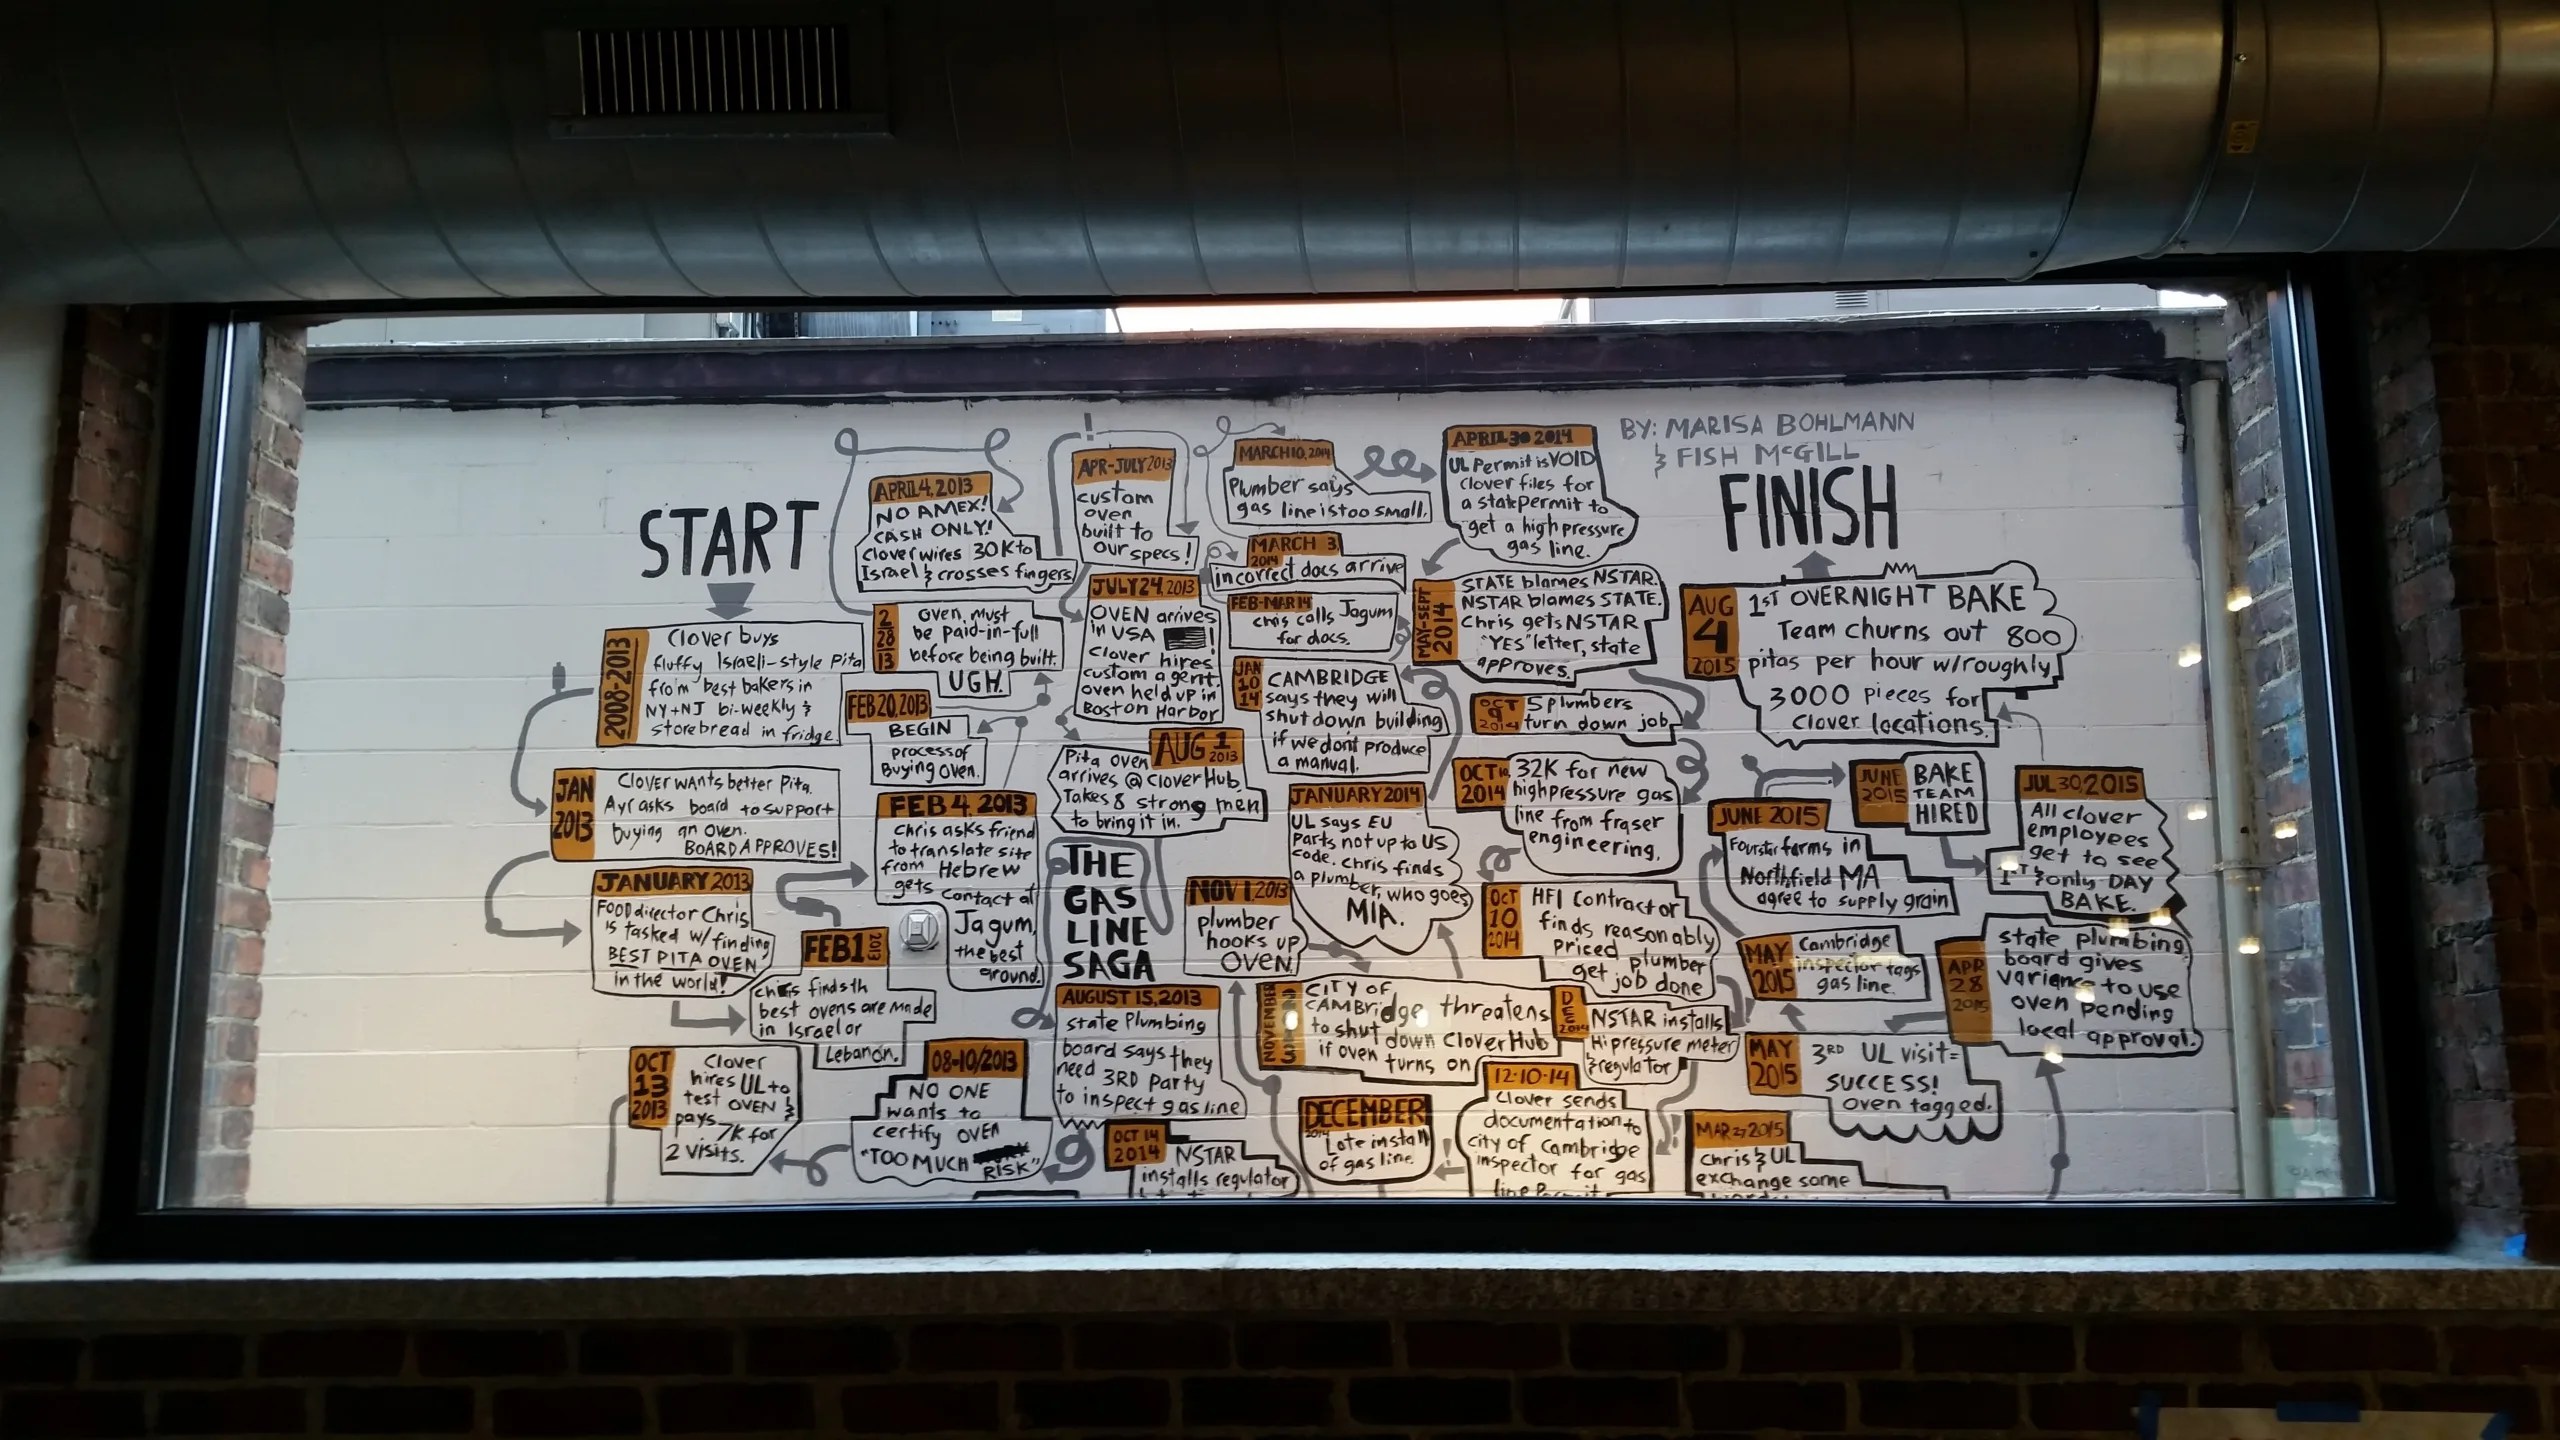 START
2008-2013
Clover buys
fluffy Israeli-style Pita
from best bakers in
NY+NJ bi-weekly &
store bread in fridge.
JAN
2013
Clover wants better Pita.
Ayr asks board to support
buying an oven.
BOARD APPROVES!
JANUARY 2013
FOOD director Chris
is tasked w/ finding
BEST PITA OVEN
in the world!
FEB 1 2013
Chris finds th
best ovens are made
in Israel or
Lebanon.
FEB 4, 2013
Chris asks friend
to translate site
from Hebrew
gets contact at
Jagum,
the best
around.
FEB 20, 2013
BEGIN
process of
Buying oven.
2
28
13
oven must
be paid-in-full
before being built.
UGH.
APRIL 4, 2013
NO AMEX!
CASH ONLY!
Clover wires 30K to
Israel & crosses fingers
APR-JULY 2013
custom
oven
built to
our specs!
JULY 24, 2013
OVEN arrives
in USA !
Clover hires
custom agent.
oven held up in
Boston Harbor
AUG 1 2013
Pita oven
arrives @ Clover Hub
Takes 8 strong men
to bring it in.
THE
GAS
LINE
SAGA
AUGUST 15, 2013
state Plumbing
board says they
need 3RD Party
to inspect gas line
08-10/2013
NO ONE
wants to
certify OVEN
"TOO MUCH
RISK"
OCT
13
2013
Clover
hires UL to
test OVEN &
pays 7K for
2 visits.
OCT 14
2014
NSTAR
installs regulator
NOV 1, 2013
plumber
hooks up
OVEN.
NOVEMBER
CITY OF
CAMBridge threatens
to shut down Clover Hub
if oven turns on
DECEMBER
Late install
of gas line.
JANUARY 2014
UL says EU
Parts not up to US
code. Chris finds
a plumber, who goes
MIA.
JAN
10
14
CAMBRIDGE
says they will
shut down building
if we dont produce
a manual.
FEB-MAR 14
Chris calls Jagum
for docs.
MARCH 3,
2014
incorrect docs arrive
MARCH 10, 2014
Plumber says
gas line is too small.
APRIL 30 2014
UL Permit is VOID
Clover files for
a state permit to
get a high pressure
gas line.
MAY-SEPT
2014
STATE blames NSTAR.
NSTAR blames STATE.
Chris gets NSTAR
"YES" letter, state
approves.
OCT
9
2014
5 plumbers
turn down job
OCT 10,
2014
32K for new
high pressure gas
line from fraser
engineering.
OCT
10
2014
HFI Contractor
finds reasonably
Priced plumber
get job done
DEC
2014
NSTAR installs
Hi pressure meter
& regulator
12-10-14
Clover sends
documentation to
city of Cambridge
inspector for gas
line Permit
MAR 27 2015
Chris & UL
exchange some
APR
28
2015
state plumbing
board gives
variance to use
oven pending
local approval.
MAY
2015
3RD UL visit=
SUCCESS!
oven tagged.
MAY
2015
Cambridge
inspector tags
gas line.
JUNE 2015
Fourstar farms in
Northfield MA
agree to supply grain
JUNE
2015
BAKE
TEAM
HIRED
JUL 30, 2015
All clover
employees
get to see
1ST & only DAY
BAKE.
AUG
4
2015
1ST OVERNIGHT BAKE
Team churns out 800
pitas per hour w/roughly
3000 pieces for
Clover locations.
FINISH
BY: MARISA BOHLMANN
& FISH McGILL